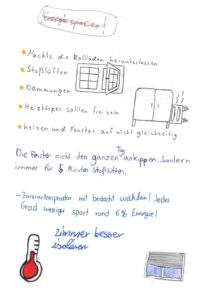 Energie sparen!
Nachts die Rollläden herunterlassen
Stoßlüften
Dämmungen
Heizkörper sollten frei sein
heizen und Fenster auf nicht gleichzeitig
Die Fenster nicht den ganzen Tag ankippen. Sondern
immer für 5 Minuten Stoßlüften.
-Zimmertemperatur mit bedacht wählen! Jedes
Grad weniger spart rund 6% Energie!
Zimmer besser
isolieren